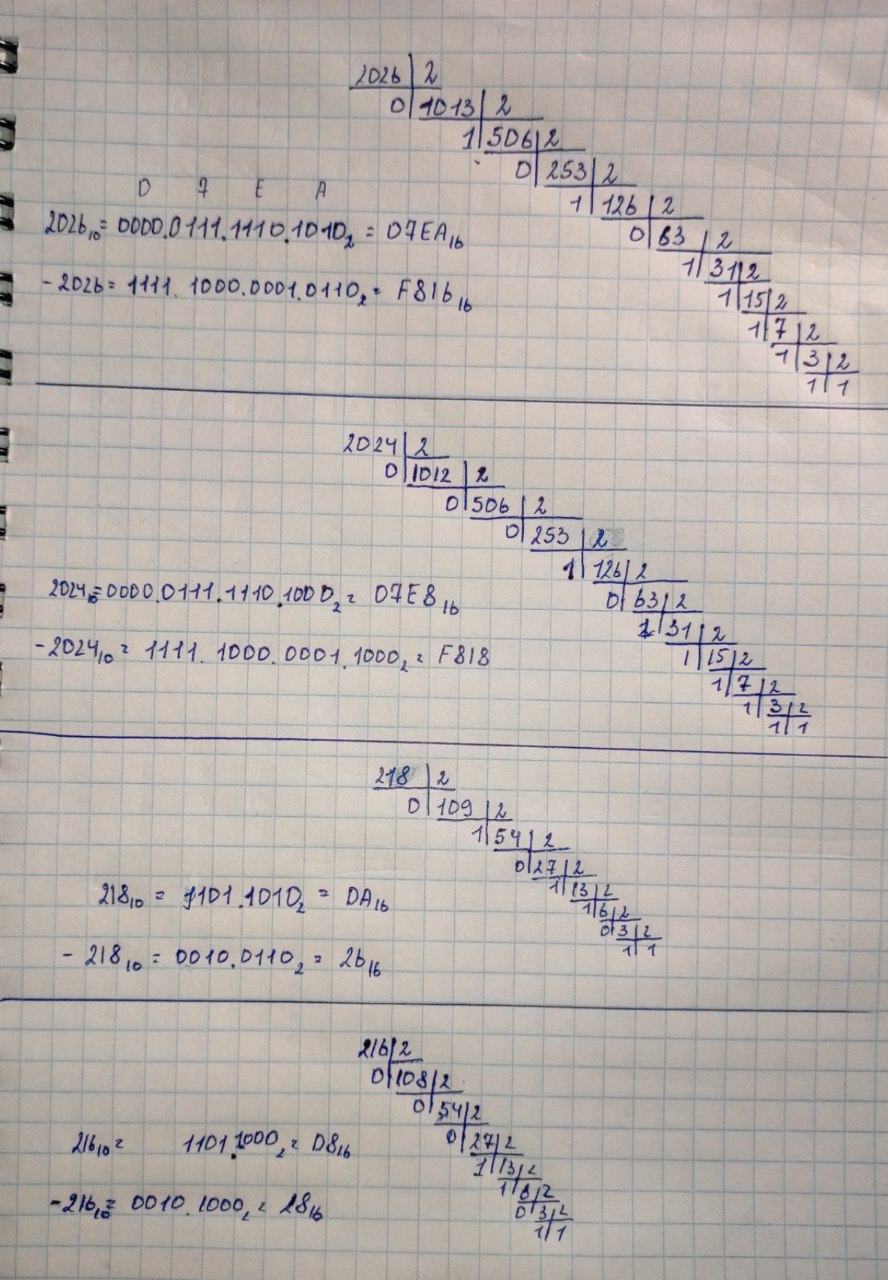 2026 | 2
0 | 1013 | 2
1 | 506 | 2
0 | 253 | 2
1 | 126 | 2
0 | 63 | 2
1 | 31 | 2
1 | 15 | 2
1 | 7 | 2
1 | 3 | 2
1 | 1
0 7 E A
2026₁₀ = 0000.0111.1110.1010₂ = 07EA₁₆
- 2026 = 1111. 1000.0001.0110₂ = F816₁₆
2024 | 2
0 | 1012 | 2
0 | 506 | 2
0 | 253 | 2
1 | 126 | 2
0 | 63 | 2
1 | 31 | 2
1 | 15 | 2
1 | 7 | 2
1 | 3 | 2
1 | 1
2024₁₀ = 0000.0111.1110.1000₂ = 07E8₁₆
- 2024₁₀ = 1111. 1000.0001.1000₂ = F818
218 | 2
0 | 109 | 2
1 | 54 | 2
0 | 27 | 2
1 | 13 | 2
1 | 6 | 2
0 | 3 | 2
1 | 1
218₁₀ = 1101.1010₂ = DA₁₆
- 218₁₀ = 0010.0110₂ = 26₁₆
216 | 2
0 | 108 | 2
0 | 54 | 2
0 | 27 | 2
1 | 13 | 2
1 | 6 | 2
0 | 3 | 2
1 | 1
216₁₀ = 1101.1000₂ = D8₁₆
- 216₁₀ = 0010.1000₂ = 28₁₆